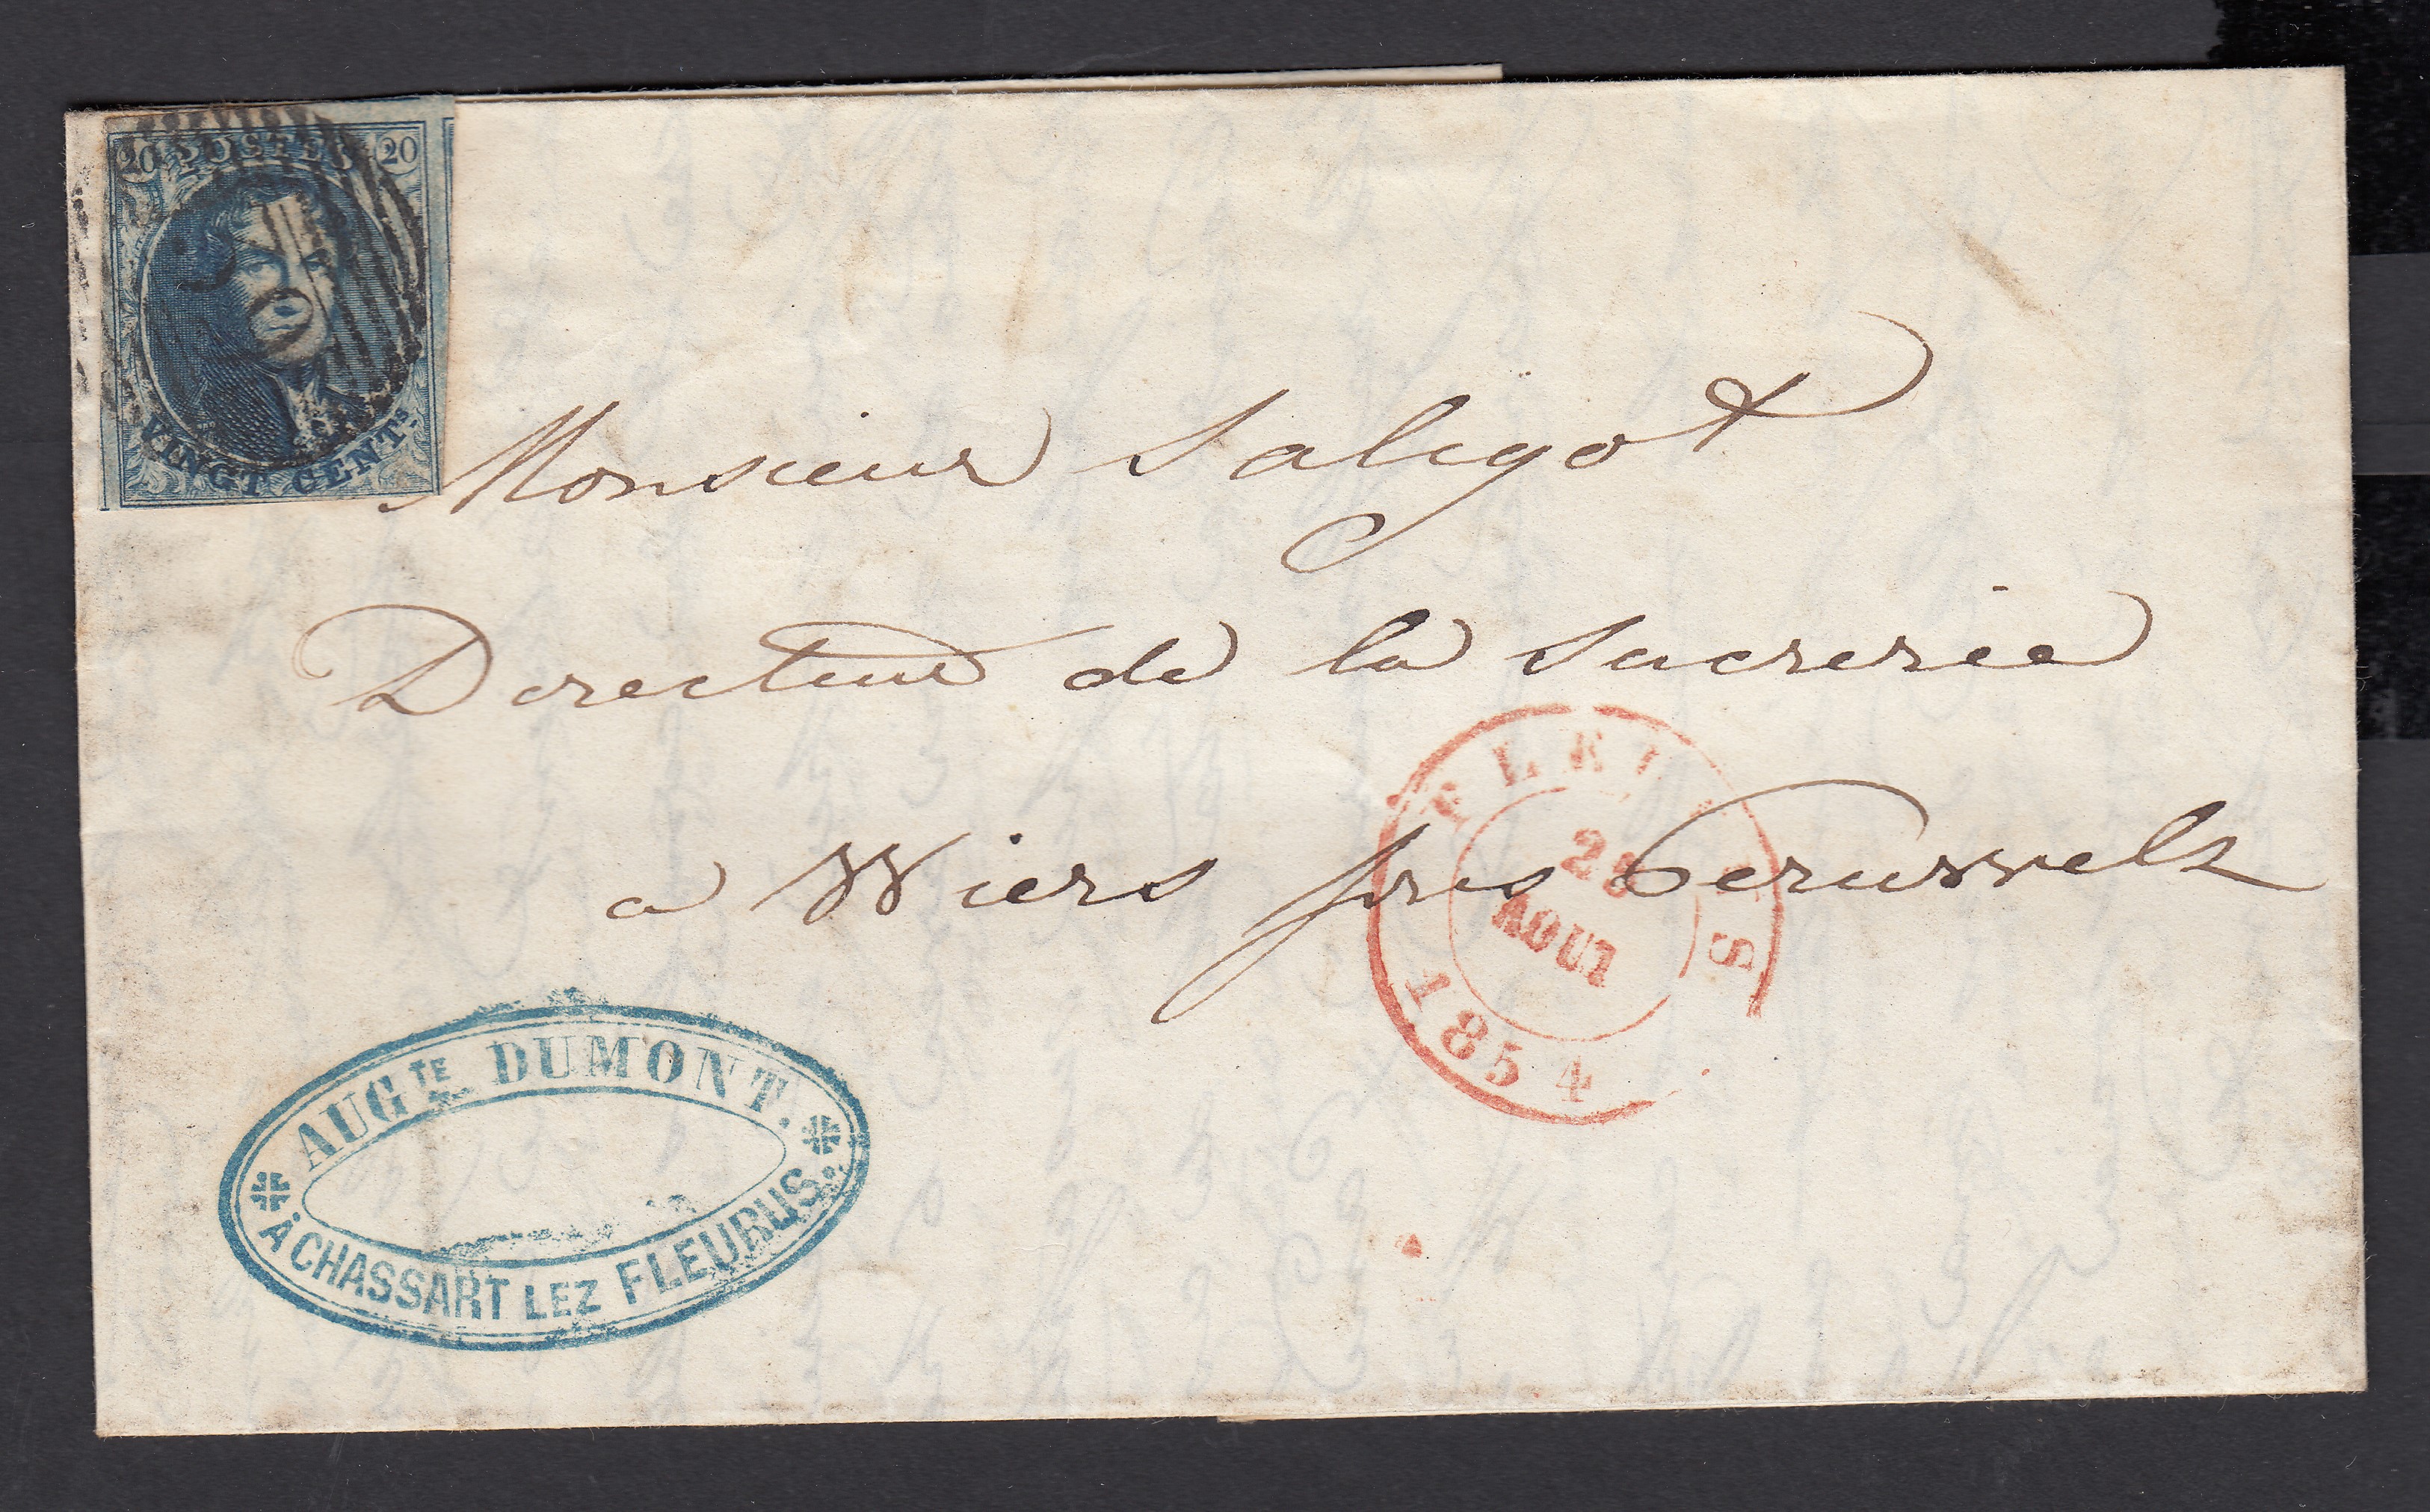 20 POSTES 20
VINGT CENTS
Monsieur Saligot
Directeur de la Sucrerie
a Wiers près Peruwelz
FLEURUS
AOUT
1854
AUGTE DUMONT.
À CHASSART LEZ FLEURUS.